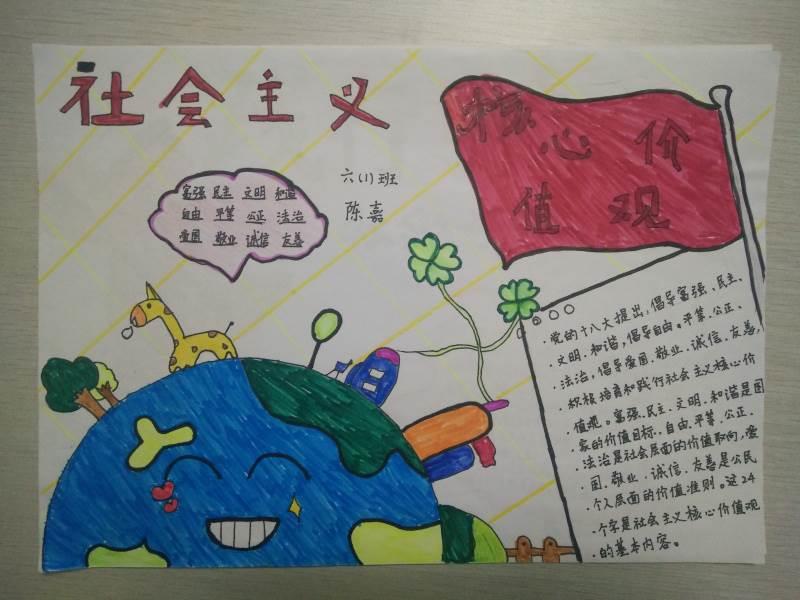 社会主义
核心价
值观
富强 民主 文明 和谐
自由 平等 公正 法治
爱国 敬业 诚信 友善
六(1)班
陈嘉
党的十八大提出，倡导富强、民主、
文明、和谐，倡导自由。平等、公正、
法治，倡导爱国、敬业、诚信、友善，
积极培育和践行社会主义核心价
值观。富强、民主、文明、和谐是国
家的价值目标，自由、平等、公正、
法治是社会层面的价值取向，爱
国、敬业、诚信、友善是公民
个人层面的价值准则。这24
个字是社会主义核心价值观
的基本内容。